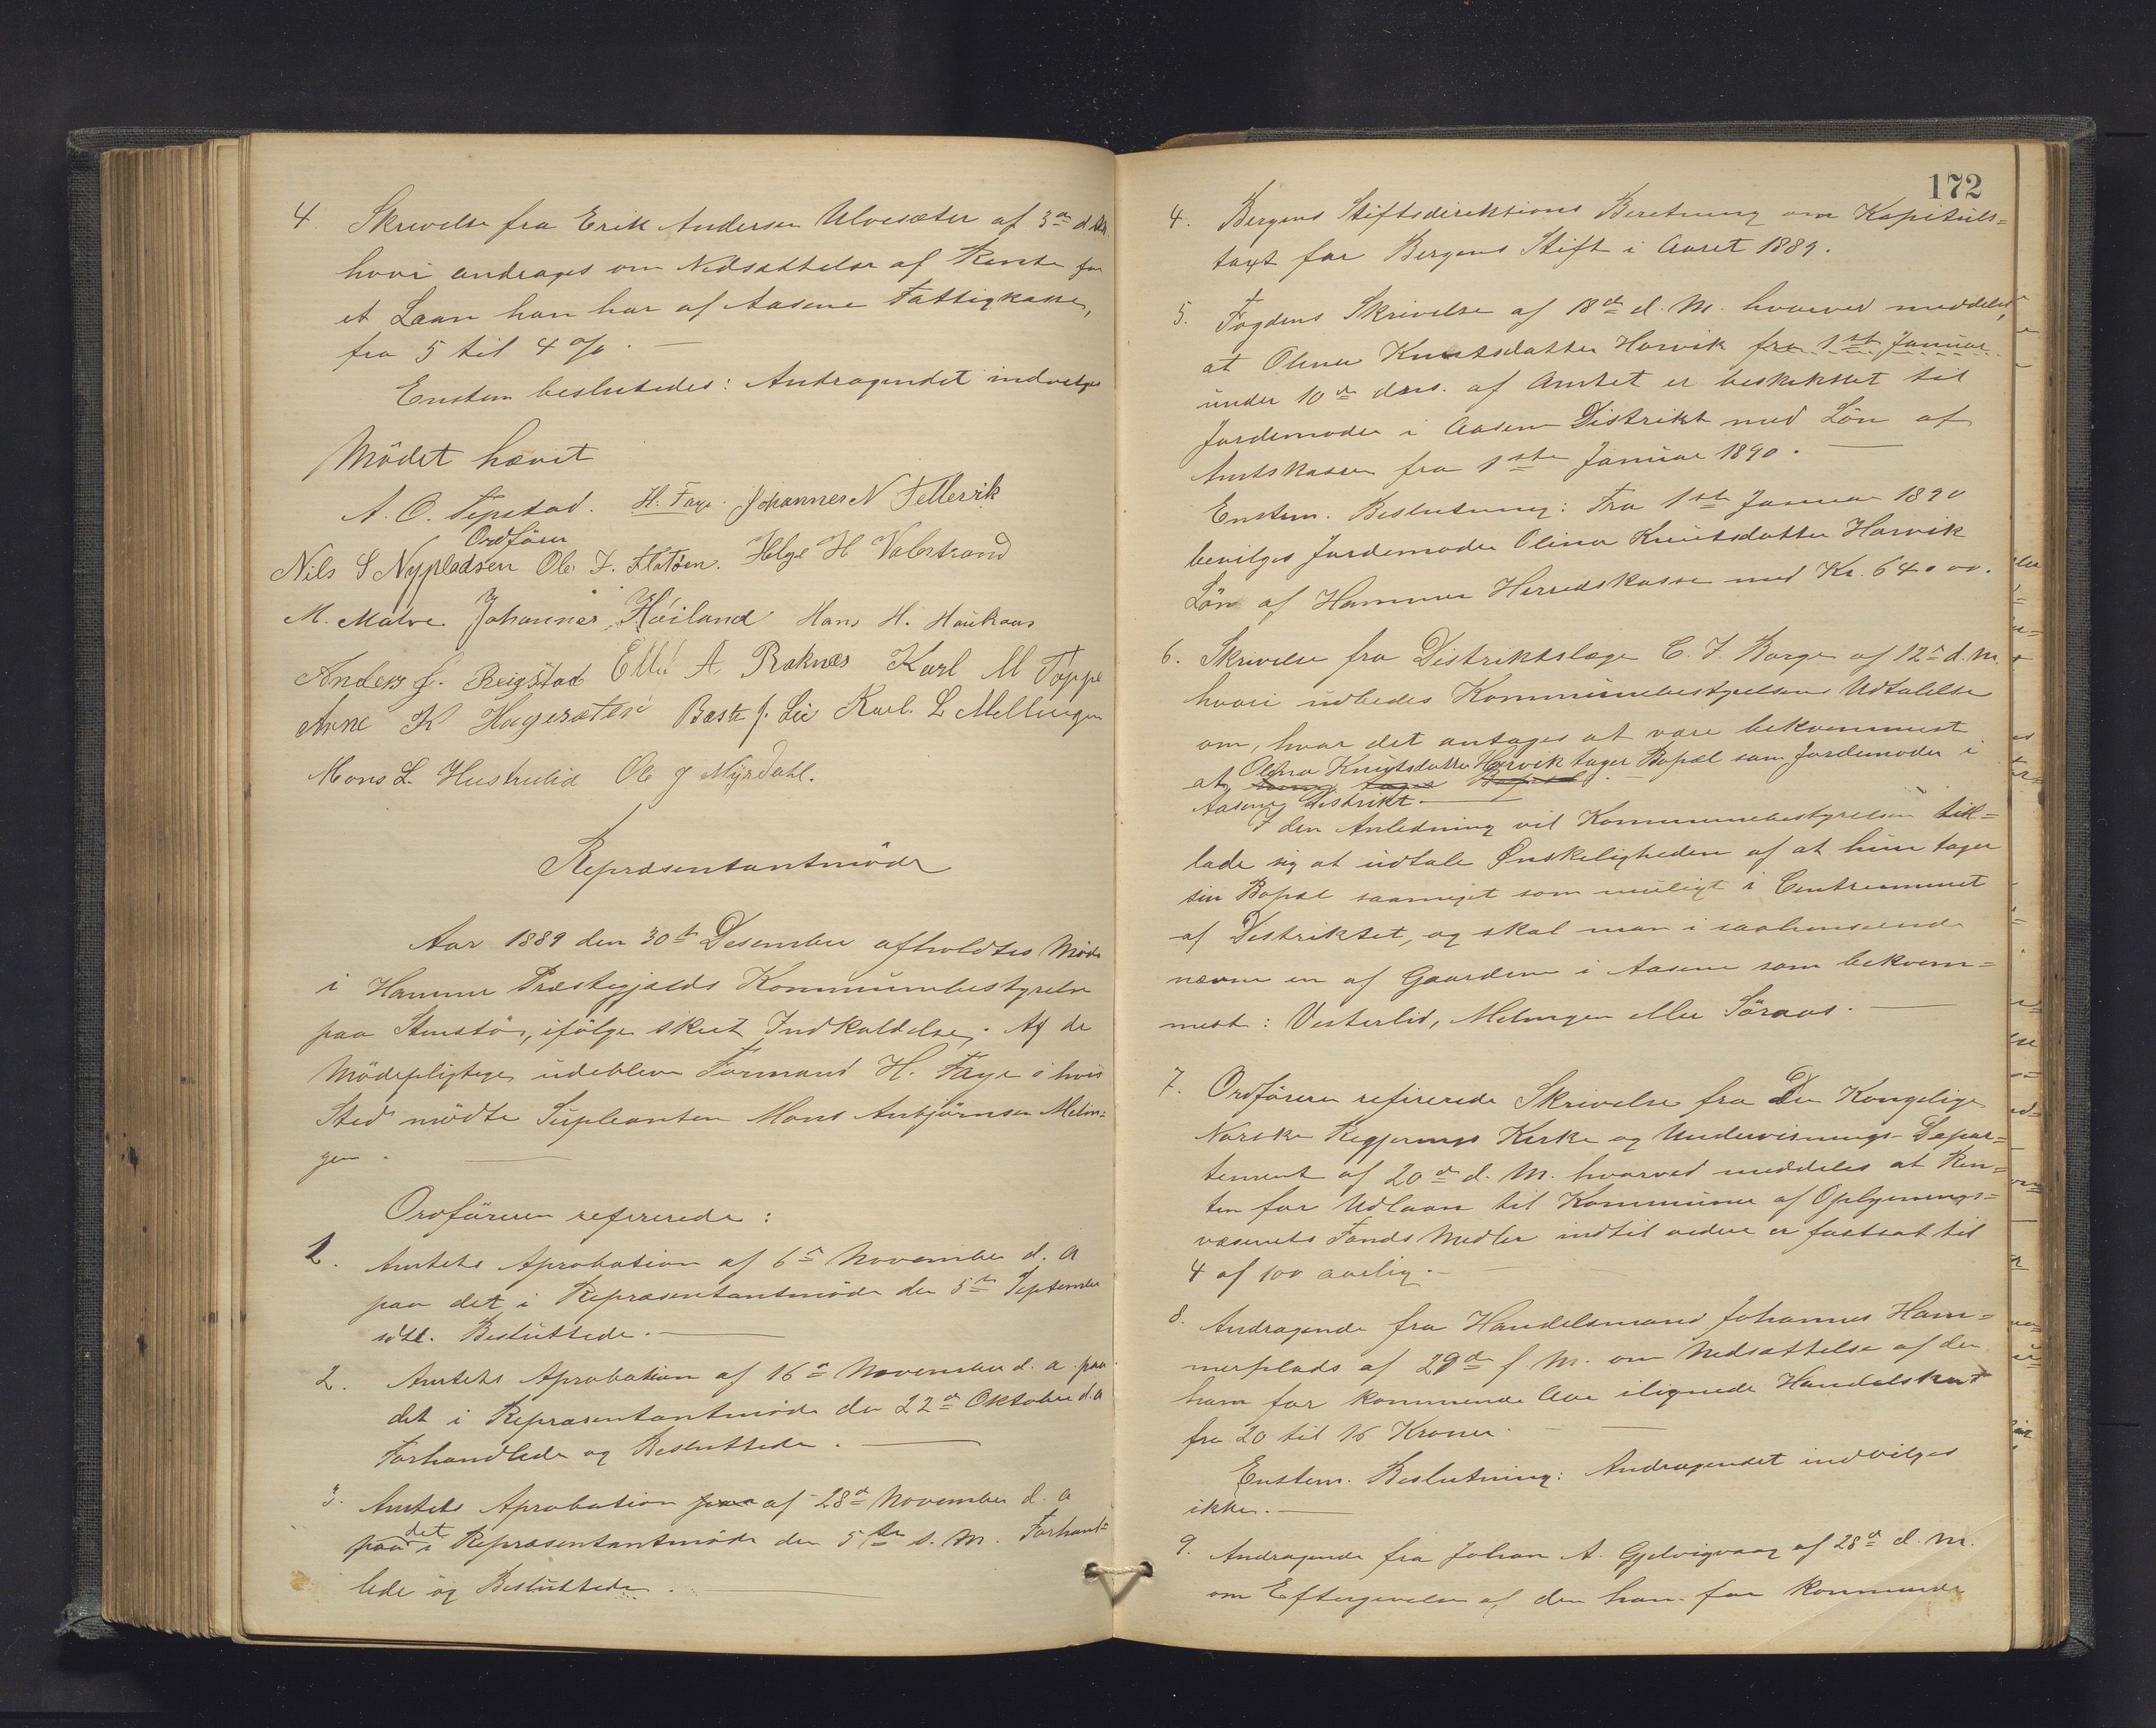 4. Skrivelse fra Erik Andersen Ulvesæter af 3de d. M.
hvori andrages om Nedsættelse af Rente for
et Laan han har af Aasene Fattigkasse,
fra 5 til 4 %. —
Enstem besluttedes: Andragendet indvilges
Mödet hævet
A. O. Tepstad. H. Faye. Johannes N Tellevik
Ordförer
Nils S Nypladsen Ole J. Flatöen. Helge H Valestrand
M. Matre Johannes Höiland Hans H. Haukaas
Anders J. Reigstad Elling A. Raknes Karl M Toppe
Arne K Hagesæter Baste J. Lie Karl. L Mellingen
Mons L. Hustrulid Ole J Myrdahl.
Repræsentantmöde
Aar 1889 den 30te Desember afholdtes Möde
i Hammer Præstegjælds Kommunebestyrelse
paa Stenstö, ifölge skeet Indkaldelse. Af de
Mödepligtige udebleve Formand H. Faye i hvis
Sted mödte Supleanten Mons Anbjörnsen Melin=
gen. —
Ordföreren refererede:
1. Amtets Aprobation af 6te November d. A
paa det i Repræsentantmöde den 5te September
sidstl. Besluttede. —
2. Amtets Aprobation af 16de November d. A. paa
det i Repræsentantmöde den 22de Oktober d. A
Forhandlede og Besluttede. —
3. Amtets Aprobation paa af 28de November d. A
paa det i Repræsentantmöde den 5te s. M. Forhand=
lede og Besluttede. —
172
4. Bergens Stiftsdirektions Beretning om Kapitels=
taxt for Bergens Stift i Aaret 1889.
5. Fogdens Skrivelse af 18de d. M. hvorved meddeles,
at Olina Knutsdatter Horvik fra 1ste Januar
under 10de dens. af Amtet er beskikket til
Jordemoder i Aasene Distrikt med Lön af
Amtskassen fra 1ste Januar 1890. —
Enstem. Beslutning: Fra 1ste Januar 1890
bevilges Jordemoder Olina Knutsdatter Horvik
Lön af Hammer Herredskasse med Kr. 64,00.
6. Skrivelse fra Distriktslæge C. J. Borge af 12te d. M.
hvori udbedes Kommunebestyrelsens Udtalelse
om, hvor det antages at være bekvemmest
at Olina Knutsdatter Horvik tager Bopæl som Jordemoder i
Aasene Distrikt. —
I den Anledning vil Kommunebestyrelsen till=
lade sig at udtale Önskeligheden af at hun tager
sin Bopæl saameget som muligt i Centrummet
af Distriktet, og skal man i saahenseende
nævne en af Gaardene i Aasene som bekvem=
mest: Vesterlid, Melingen eller Söraas. —
7. Ordföreren refererede Skrivelse fra Den Kongelige
Norske Regjerings Kirke og Undervisnings-Depar=
tement af 20de d. M. hvorved meddeles at Ren=
ten for Udlaan til Kommuner af Oplysnings=
væsenets Fonds Midler indtil videre er fastsat til
4 af 100 aarlig. —
8. Andragende fra Handelsmand Johannes Ham=
merplads af 29de f. M. om Nedsættelse af den
ham for kommende Aar ilignede Handelskat
fra 20 til 16 Kroner. —
Enstem. Beslutning: Andragendet indvilges
ikke. —
9. Andragende fra Johan A. Gjelvigvaag af 28de d. M.
om Eftergivelse af den ham for kommende